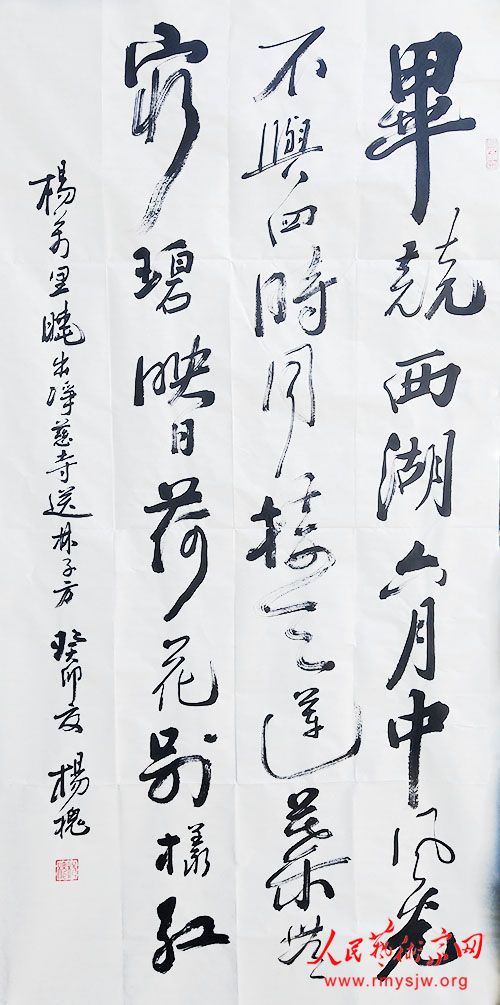 畢競西湖六月中風光
不與四時同接天蓮葉無
窮碧映日荷花別樣紅
楊萬里曉出淨慈寺送林子方 癸卯夏 楊槐
人民藝術家网
www.rmysjw.org